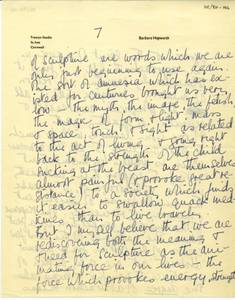 Trewyn Studio
St. Ives
Cornwall
Barbara Hepworth
7
of sculpture are words which we are
only just beginning to use again.
The sort of amnesia which has ex-
isted for centuries brought us very
low - the myth, the image the fetish,
the magic of form & light mass
& space, touch & sight as related
to the act of living & song right
back to the strength of the child
sucking at the breast are themselves
almost painful & provoke great re-
sistance, to a society which finds
it easier to swallow quack med-
icines than to live bravely.
But I myself believe that we are
rediscovering both the meaning &
need for sculpture as the ani-
mating force in our lives - the
force which provokes energy, strength